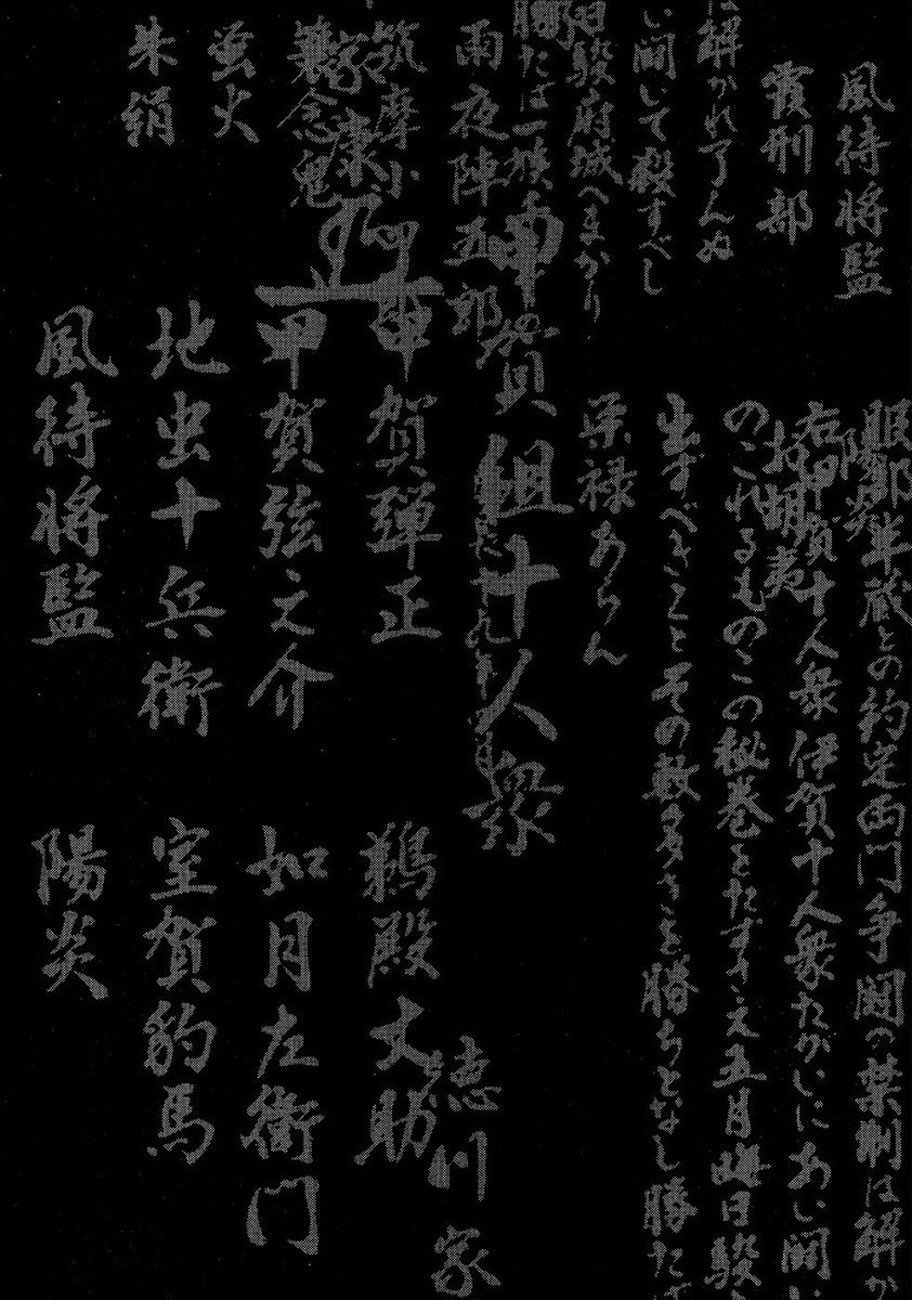 風待将監
霞刑部
は解かれ了んぬ
い闘いて殺すべし
駿府城へまかり
勝たば一族
雨夜陣五郎
筑摩小
簔念鬼
蛍火
朱絹
服部半蔵との約定両門争闘の禁制は解か
陽炎
右甲賀十人衆伊賀十人衆たがいにあい闘い
お胡夷
のこれるものこの秘巻をたずさえ五月晦日駿
生ずべきことその数多きを勝ちとなし勝たば
栄禄あらん
甲賀組十人衆
甲賀弾正
甲賀弦之介
地虫十兵衛
風待将監
鵜殿丈助
如月左衛門
室賀豹馬
陽炎
徳川家